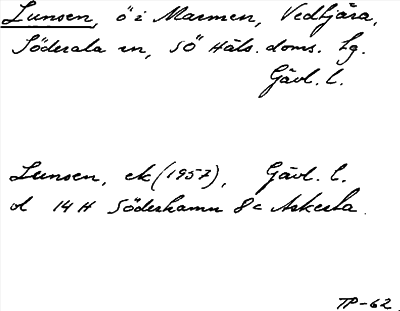 Lunsen, ö i Marmen, Vedtjära,
Söderala sn, SÖ Häls. doms. lg.
Gävl. l.
Lunsen, ek (1957), Gävl. l.
d 14 H Söderhamn 8c Askesta.
TP-62.